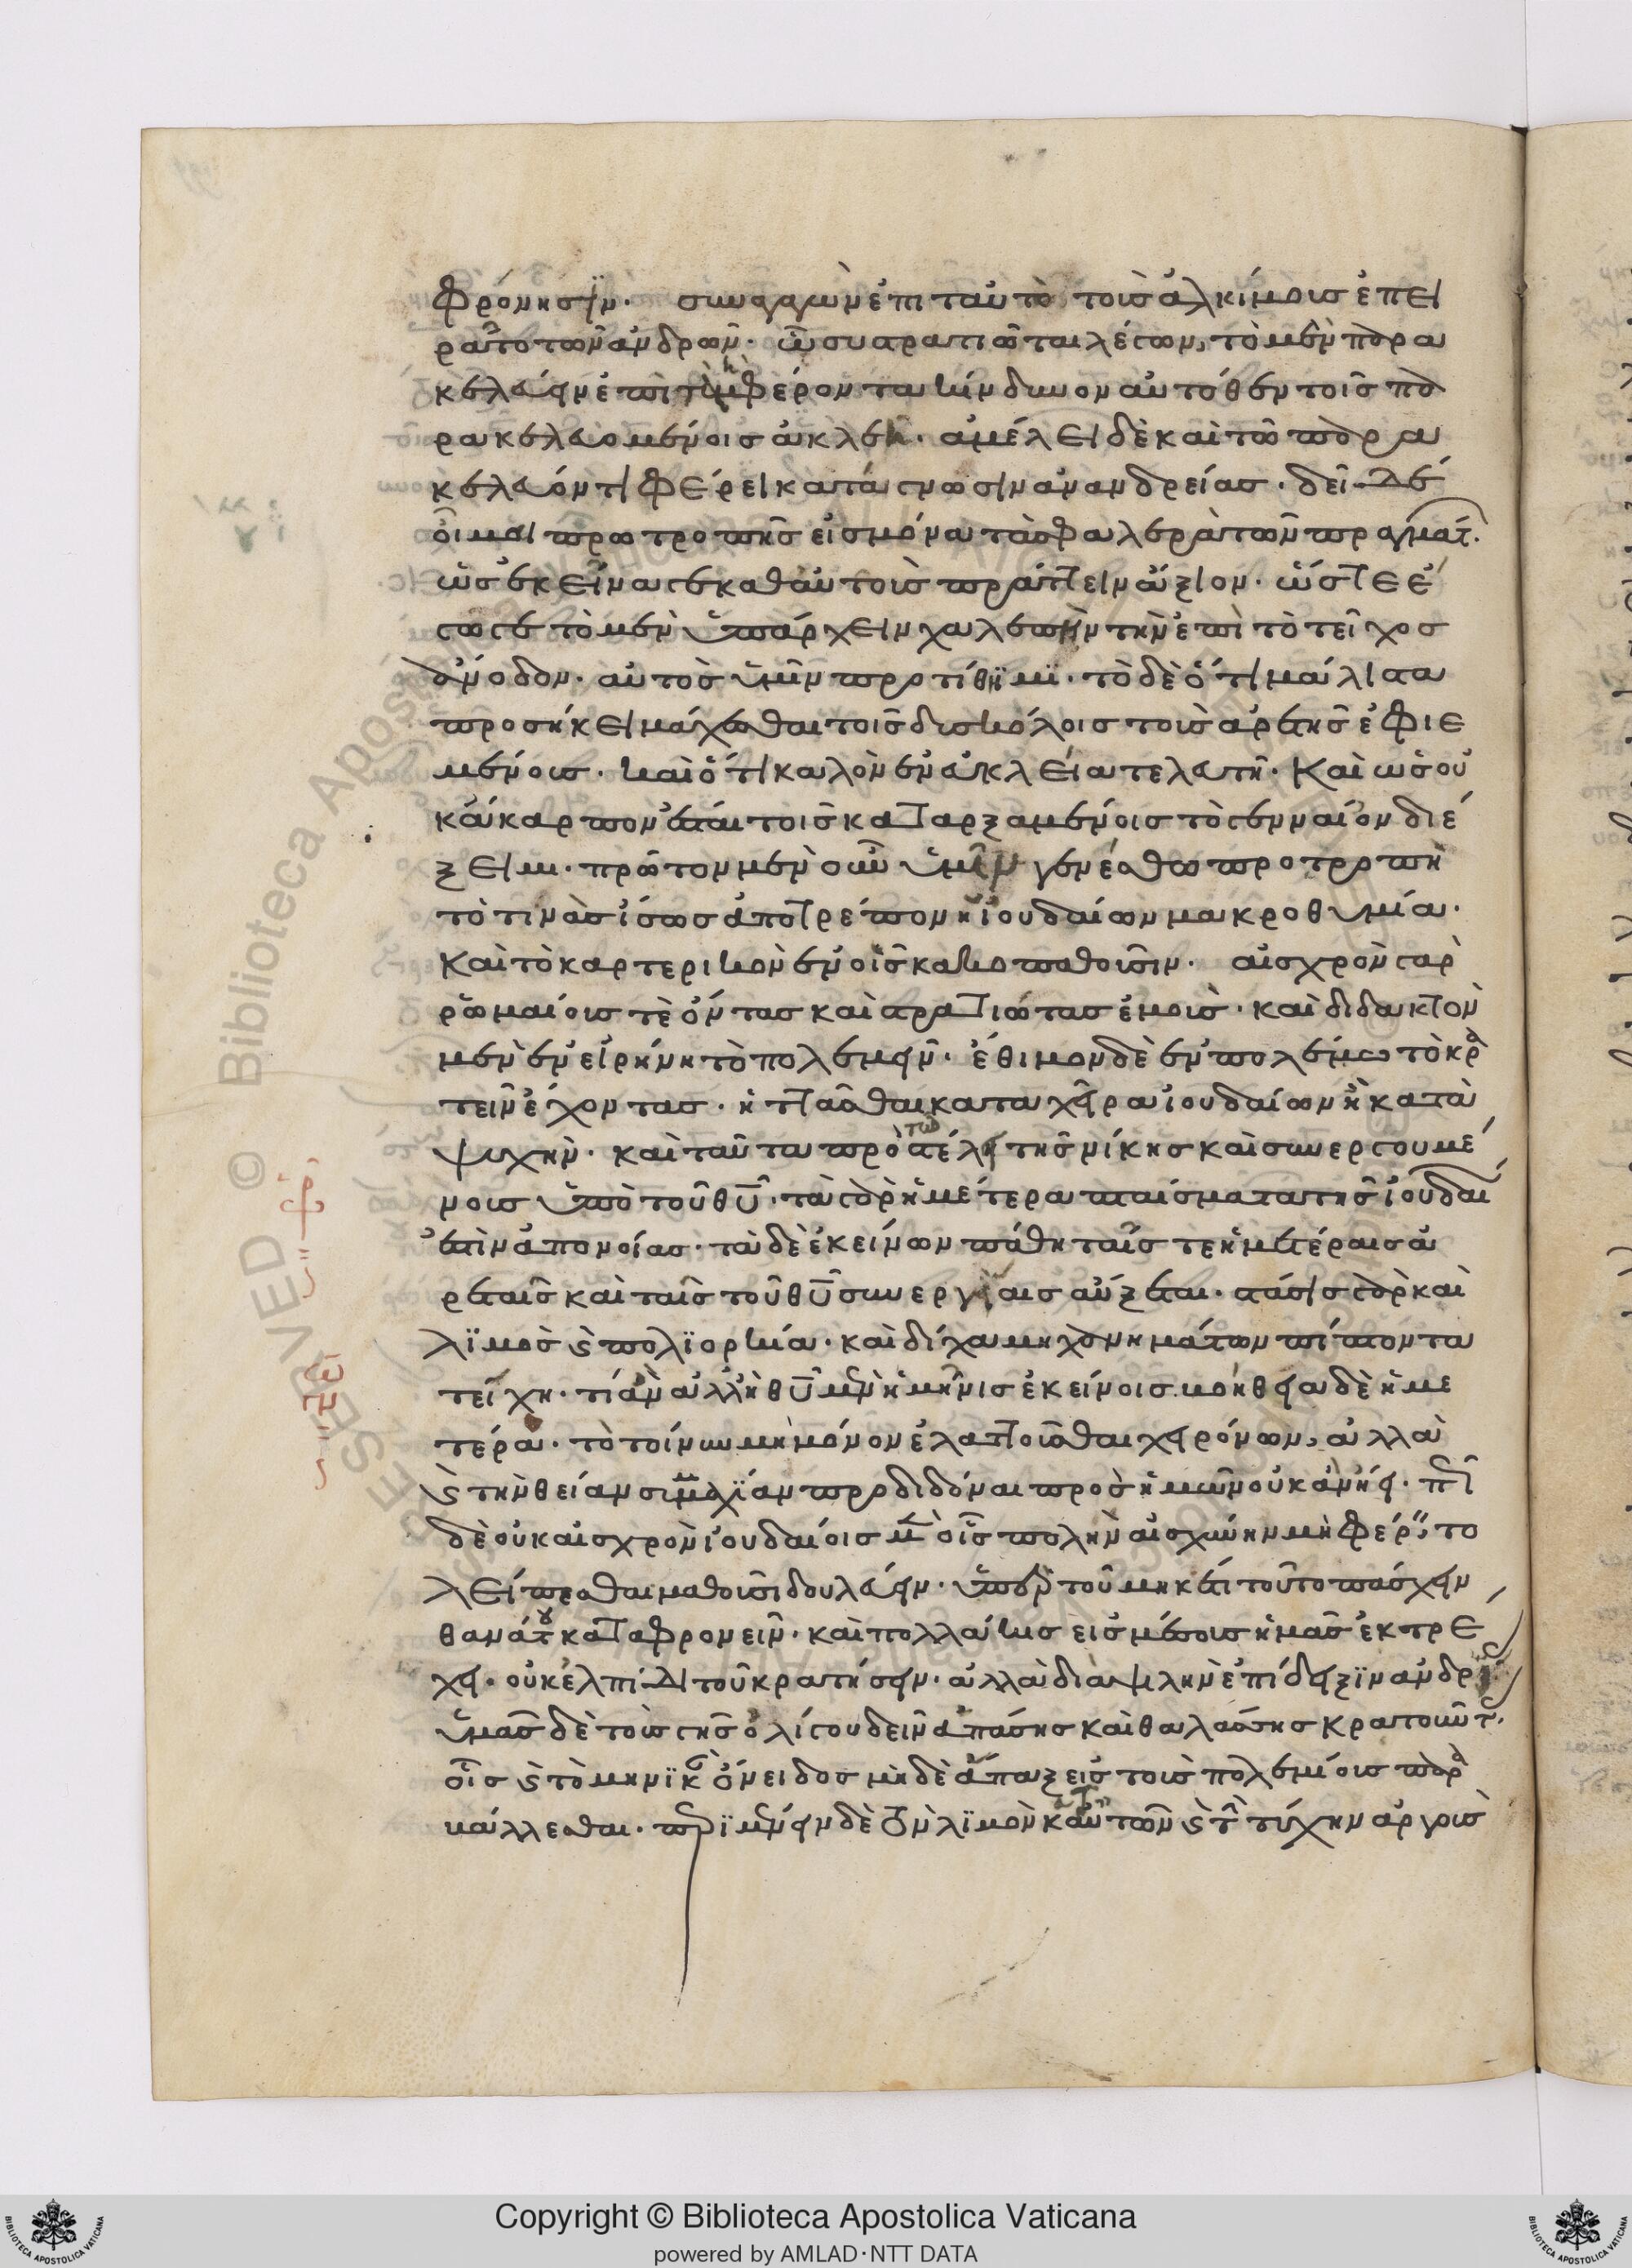 φρόνησϊν. συναγαγὼν ἐπι ταὐτὸ τοὺσ ἀλκίμουσ ἐπει
ρᾶτο τῶν ἀνδρῶν. ὦ συστρατιῶται λέγων, τὸ μὲν παρα
κελεύειν ἐπὶ τὰ μὴ φέροντα κίνδυνον αὐτόθεν τοῖσ πα
ρακελευομένοισ ἀκλεὲσ. ἀμέλει δὲ καὶ τῶ παρα
κελεύοντι φέρει κατάγνωσιν ἀνανδρείασ. δεῖ δέ
οἶμαι προτροπῆσ εἰσ μόνα τὰ σφαλερὰ τῶν πραγμάτ.
ὡσ ἐκεῖνα γε καθ αὐτοὺσ πράττειν ἄξιον. ὥστε ἔ
γωγε τὸ μὲν ὑπάρχειν χαλεπὴν τὴν ἐπὶ τὸ τεῖχοσ
ἄνοδον. αὐτὸσ ὑμῖν προτίθημϊ. τὸ δὲ ὅτι μάλιστα
προσήκει μάχεσθαι τοῖσ δυσκόλοισ τοὺσ ἀρετῆσ ἐφιε
μένουσ. καὶ ὅτι καλὸν ἐν εὐκλεία τελευτῆ. καὶ ὡσ οὐ
κ ἄκαρπον ἔσται τοῖσ καταρξαμένοισ τὸ γενναίον διέ
ξειμι. πρῶτον μὲν οὖν ὑμῖν γενέσθω προτροπὴ
τὸ τινὰσ ἴσωσ ἀποτρέπον ἡ ἰουδαίων μακροθυμία.
καὶ τὸ καρτερικὸν ἐν οἷσ κακοπαθοῦσιν. αἰσχρὸν γὰρ
ῥωμαίουσ τὲ ὄντασ καὶ στρατιώτασ ἐμοὺσ. καὶ διδακτὸν
μὲν ἐν εἰρήνη τὸ πολεμεῖν. ἔθιμον δὲ ἐν πολέμω τὸ κρα
τεῖν ἔχοντασ. ἡττᾶσθαι κατα χεῖρα ἰουδαίων ἢ κατὰ
ψυχὴν. καὶ ταῦτα πρὸσ τῶ τέλει τῆσ νίκησ καὶ συνεργουμέ
νουσ ὑπὸ τοῦ θυ. τὰ γὰρ ἡμέτερα πταίσματα τῆσ ἰουδαί
ἐστὶν ἀπονοίασ. τὰ δὲ ἐκείνων πάθη ταῖσ τε ἡμετέραισ ἀ
ρεταῖσ καὶ ταῖσ τοῦ θυ συνεργίαισ αὔξεται. στάσισ γὰρ καὶ
λϊμὸσ ϛ πολϊορκία. καὶ δίχα μηχανημάτων πίπτοντα
τείχη. τί ἂν ἀλλ ἢ θυ μὲν ἡ μῆνισ ἐκείνοισ. βοήθεια δὲ ἡμε
τέρα. τὸ τοίνυν μὴ μόνον ἐλαττοῦσθαι χειρόνων, ἀλλὰ
ϛ τὴν θείαν συμμαχϊαν προδιδόναι πρὸσ ἡμῶν οὐκ ἂν εἴη. πῶσ
δὲ οὐκ αἰσχρὸν ἰουδαίουσ μὲν οἷσ πολλὴν αἰσχύνην μὴ φέρει, το
λείπεσθαι μαθοῦσι δουλεύειν. ὑπὲρ τοῦ μηκέτι τοῦτο πάσχειν
θανάτου καταφρονεῖν. καὶ πολλάκισ εἰσ μέσουσ ἡμᾶσ ἐκτρέ
χειν. οὐκ ἐλπίδι τοῦ κρατήσειν. ἀλλὰ δια ψιλὴν ἐπίδειξϊν ἀνδρείασ
ὑμᾶσ δὲ τοὺσ γῆσ ὀλίγου δεῖν ἁπάσησ καὶ θαλάσσησ κρατοῦντ.
οἷσ ϛ τὸ μὴ νϊκᾶν ὄνειδοσ μὴδὲ ἅπαξ εἰσ τοὺσ πολεμίουσ παρα
βάλλεσθαι. περϊμένειν δὲ τὸν λϊμὸν κατ αὐτῶν ϛ τὴν τύχην ἀργοὺσ